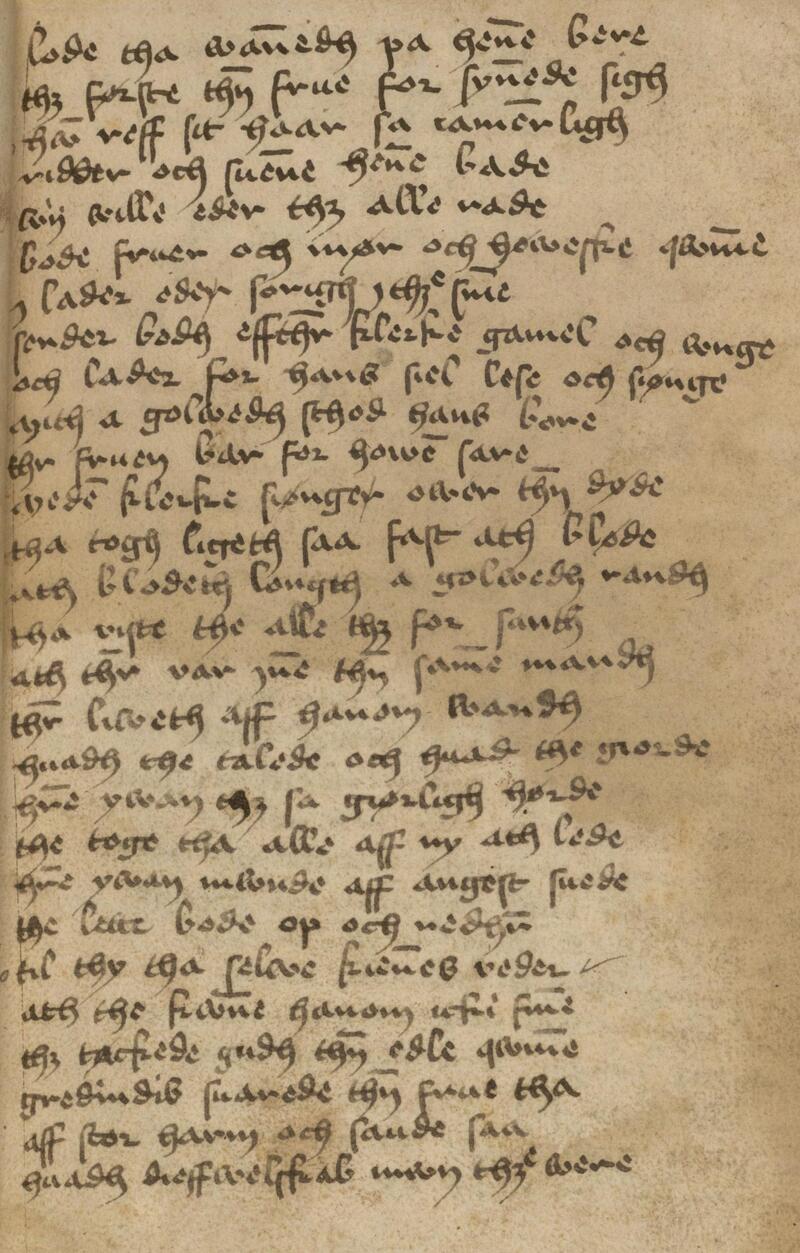 lode tha wan̄edh pa hen̄e bere
thȝ første thn̄ frue for syn̄ede sigh
han̄ reff sit haar sa iamer̄ligh
ridder och suen̄e hen̄e bade
wij wille eder thȝ alle rade
bode fruer och mør och howeske qwīne
j lader eder sorigh j thȝe sīne
sender bodh effthr̄ klerke gamel och wnge
och lader for hans siel lese och siønge
mith a golwedh sthod hans bore
thr fruen bar for howē sare
medē klerke siønger ower thn̄ døde
tha togh ligeth saa fast ath bløde
ath blodeth løngth a golwedh randh
tha viste the alle thȝ for santh
ath thr̄ var jn̄e thn̄ sam̄e mandh
thr̄ liweth aff hanom wandh
huadh the talede och huad the giorde
hr̄e ywan thȝ sa giørligh hørde
the toge tha alle aff ny ath lede
hr̄e ywan mwnde aff angest suede
the leet bode op och nedhn̄
til thy tha selwe kien̄es veder
ath the kwn̄e hanom icke fīne
thȝ tackede gudh thn̄ edle qwīne
gredindis suarede thn̄ frue tha
aff stor harm och sande saa
huadh dieffwelskab mwn thȝe were